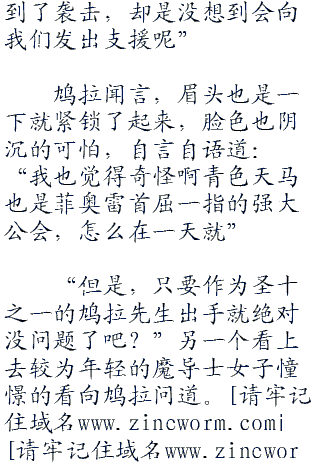 到了袭击，却是没想到会向
我们发出支援呢”
鸠拉闻言，眉头也是一
下就紧锁了起来，脸色也阴
沉的可怕，自言自语道：
“我也觉得奇怪啊青色天马
也是菲奥雷首屈一指的强大
公会，怎么在一天就”
“但是，只要作为圣十
之一的鸠拉先生出手就绝对
没问题了吧？”另一个看上
去较为年轻的魔导士女子憧
憬的看向鸠拉问道。[请牢记
住域名www.zincworm.comi
[请牢记住域名www.zincwor